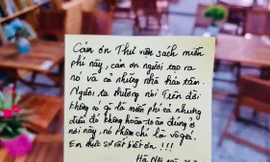 Cảm ơn Thư viện sách miễn
phí này, cảm ơn người tạo ra
nó và cả những nhà hảo tâm.
Người ta thường nói Trên đời
không có gì là miễn phí cả nhưng
điều đó không hoàn toàn đúng ở
nơi này, nó thậm chí là vô giá.
Em thực sự rất biết ơn !!!
Hà Nội